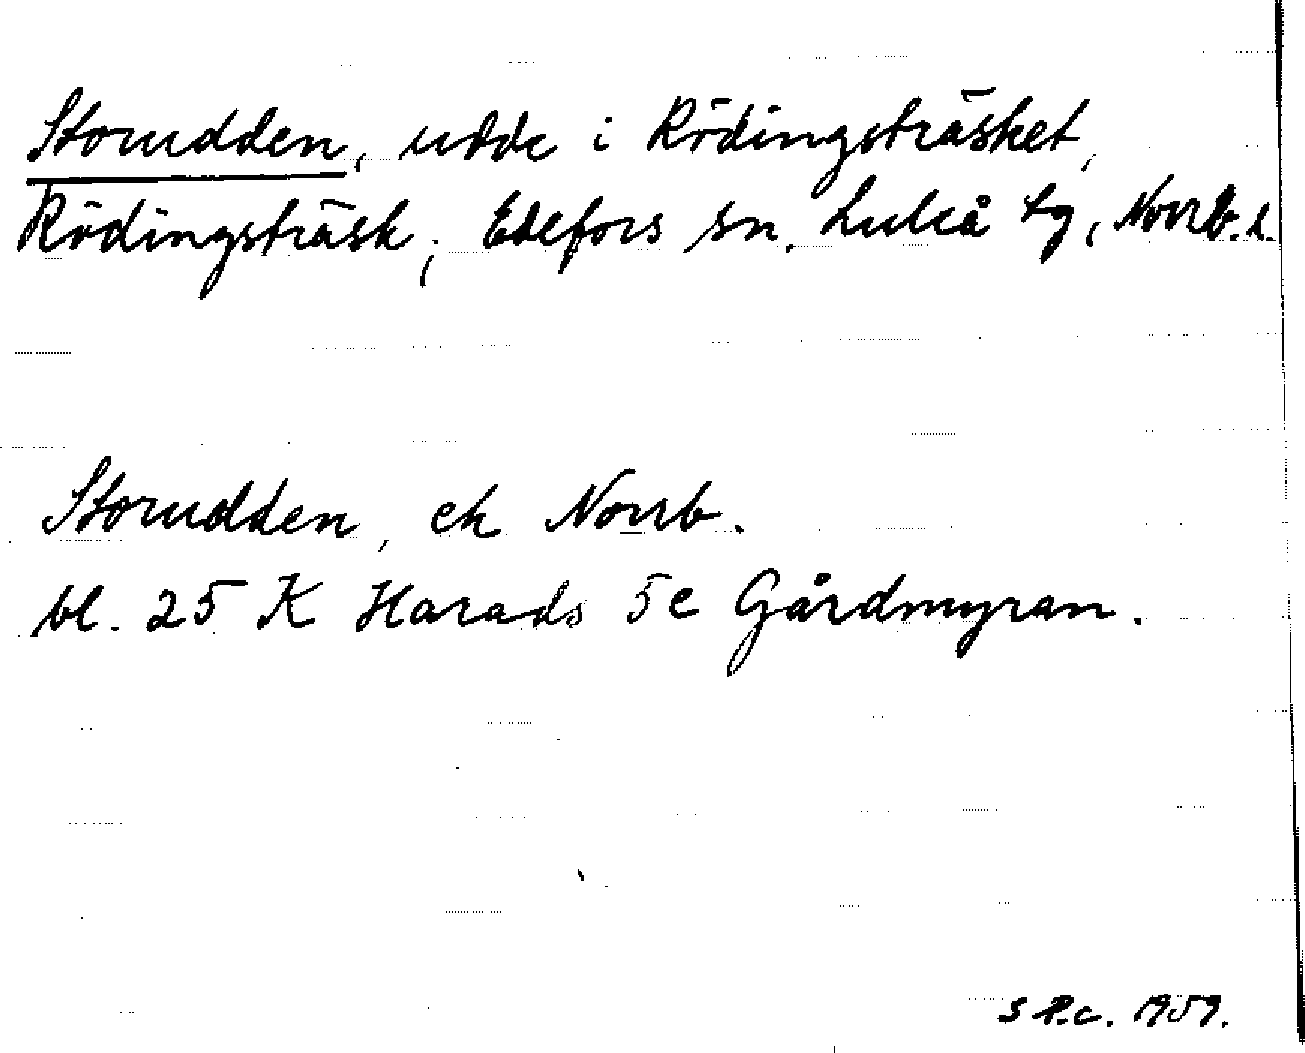 Storudden, udde i Rödingsträsket,
Rödingsträsk, Edefors sn. Luleå tg, Norrb. l.
Storudden, ek Norrb.
bl. 25 K Harads 5e Gårdmyran.
S R.c. 1959.